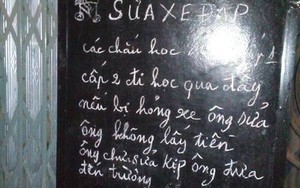 SỬA XE ĐẠP
các cháu học
cấp 2 đi học qua đây
nếu bị hỏng xe ông sửa
ông không lấy tiền
ông chưa sửa kịp ông đưa
đến trường